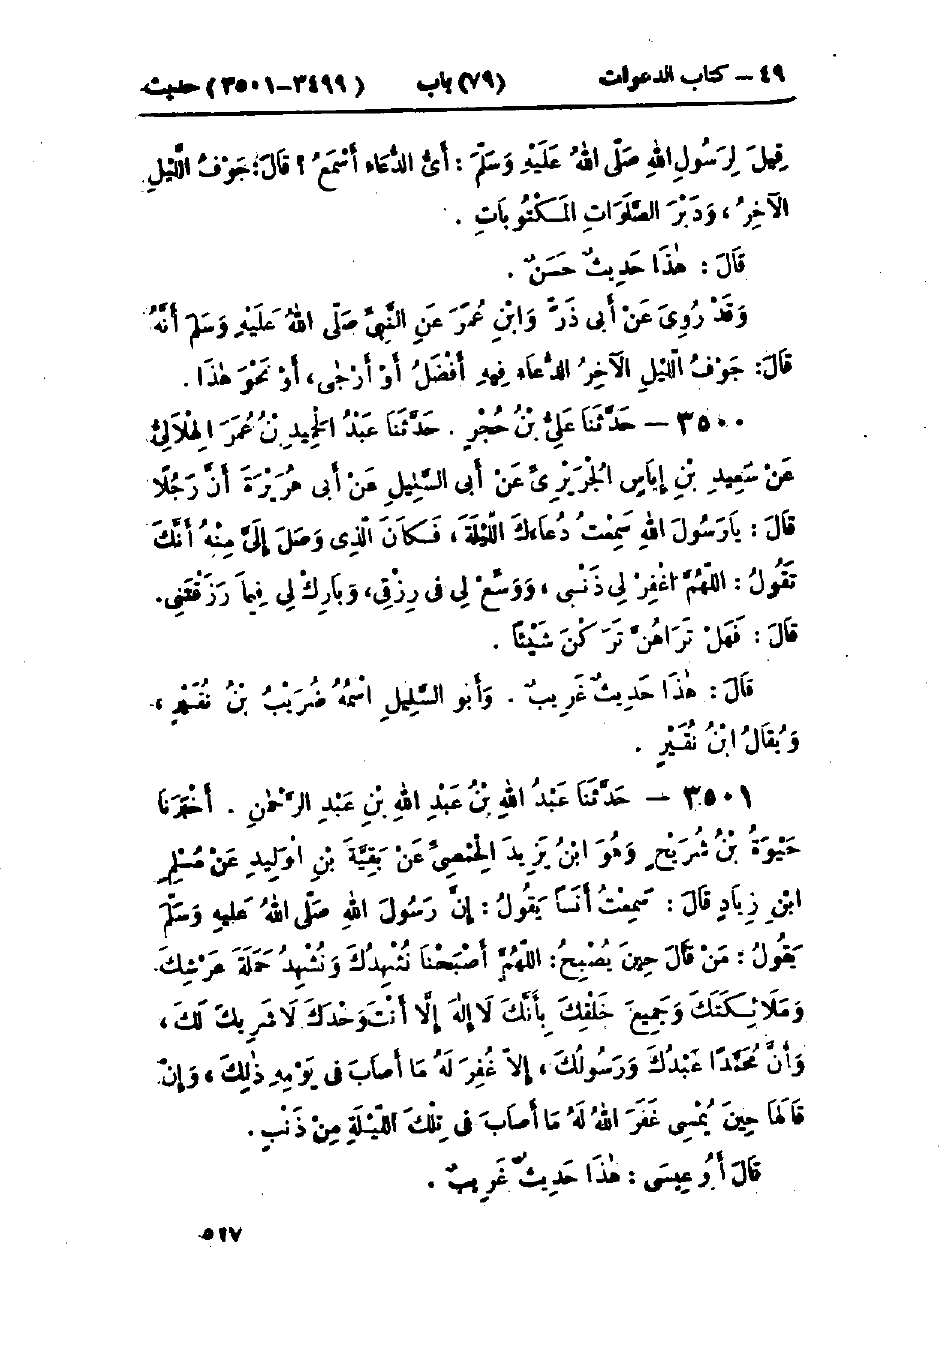 ٤٩ – كتاب الدعوات (٧٩) باب (٣٤٩٩–٣٥٠١) حديث
قِيلَ لِرَسُولِ اللهِ صَلَّى اللهُ عَلَيْهِ وَسَلَّمَ : أَىُّ الدُّعَاءِ أَسْمَعُ ؟ قَالَ : جَوْفُ اللَّيْلِ
الآخِرُ ، وَدُبْرَ الصَّلَوَاتِ المَكْتُوبَاتِ .
قَالَ : هٰذَا حَدِيثٌ حَسَنٌ .
وَقَدْ رُوِىَ عَنْ أَبى ذَرٍّ وَابْنِ عُمَرَ عَنِ النَّبِيِّ صَلَّى اللهُ عَلَيْهِ وَسَلَّمَ أَنَّهُ
قَالَ : جَوْفُ اللَّيْلِ الآخِرُ الدُّعَاءُ فِيهِ أَفْضَلُ أَوْ أَرْجٰى، أَوْ نَحْوَ هٰذَا .
٣٥٠٠ – حَدَّثَنَا عَلِىُّ بْنُ حُجْرٍ . حَدَّثَنَا عَبْدُ الحَمِيدِ بْنُ عُمَرَ الهِلَالِىُّ
عَنْ سَعِيدِ بْنِ إِيَاسٍ الجُرَيْرِىِّ عَنْ أَبى السَّلِيلِ عَنْ أَبى هُرَيْرَةَ أَنَّ رَجُلًا
قَالَ : يَارَسُولَ اللهِ سَمِعْتُ دُعَاءَكَ اللَّيْلَةَ ، فَكَانَ الَّذِى وَصَلَ إِلَىَّ مِنْهُ أَنَّكَ
تَقُولُ : اللَّهُمَّ اغْفِرْ لِى ذَنْبِى ، وَوَسِّعْ لِى فى رِزْقِى، وَبَارِكْ لِى فِيمَا رَزَقْتَنِى.
قَالَ : فَهَلْ تَرَاهُنَّ تَرَكْنَ شَيْئًا .
قَالَ : هٰذَا حَدِيثٌ غَرِيبٌ . وَأَبُو السَّلِيلِ اسْمُهُ ضُرَيْبُ بْنُ نُفَيْرٍ ،
وَيُقَالُ ابْنُ نُقَيْرٍ .
٣٥٠١ – حَدَّثَنَا عَبْدُ اللهِ بْنُ عَبْدِ اللهِ بْنِ عَبْدِ الرَّحْمٰنِ . أَخْبَرَنَا
حَيْوَةُ بْنُ شُرَيْحٍ وَهُوَ ابْنُ يَزِيدَ الحِمْصِىُّ عَنْ بَقِيَّةَ بْنِ الوَلِيدِ عَنْ مُسْلِمِ
ابْنِ زِيَادٍ قَالَ : سَمِعْتُ أَنَسًا يَقُولُ : إِنَّ رَسُولَ اللهِ صَلَّى اللهُ عَلَيهِ وَسَلَّمَ
يَقُولُ : مَنْ قَالَ حِينَ يُصْبِحُ: اللَّهُمَّ أَصْبَحْنَا نُشْهِدُكَ وَنُشْهِدُ حَمَلَةَ عَرْشِكَ
وَمَلَائِكَتَكَ وَجَمِيعَ خَلْقِكَ بِأَنَّكَ لَا إِلٰهَ إِلَّا أَنْتَ وَحْدَكَ لَا شَرِيكَ لَكَ ،
وَأَنَّ مُحَمَّدًا عَبْدُكَ وَرَسُولُكَ ، إِلاَّ غُفِرَ لَهُ مَا أَصَابَ فى يَوْمِهِ ذٰلِكَ ، وَإِنْ
قَالَهَا حِينَ يُمْسِى غَفَرَ اللهُ لَهُ مَا أَصَابَ فى تِلْكَ اللَّيْلَةِ مِنْ ذَنْبٍ .
قَالَ أَبُو عِيسَى : هٰذَا حَدِيثٌ غَرِيبٌ .
٥٢٧